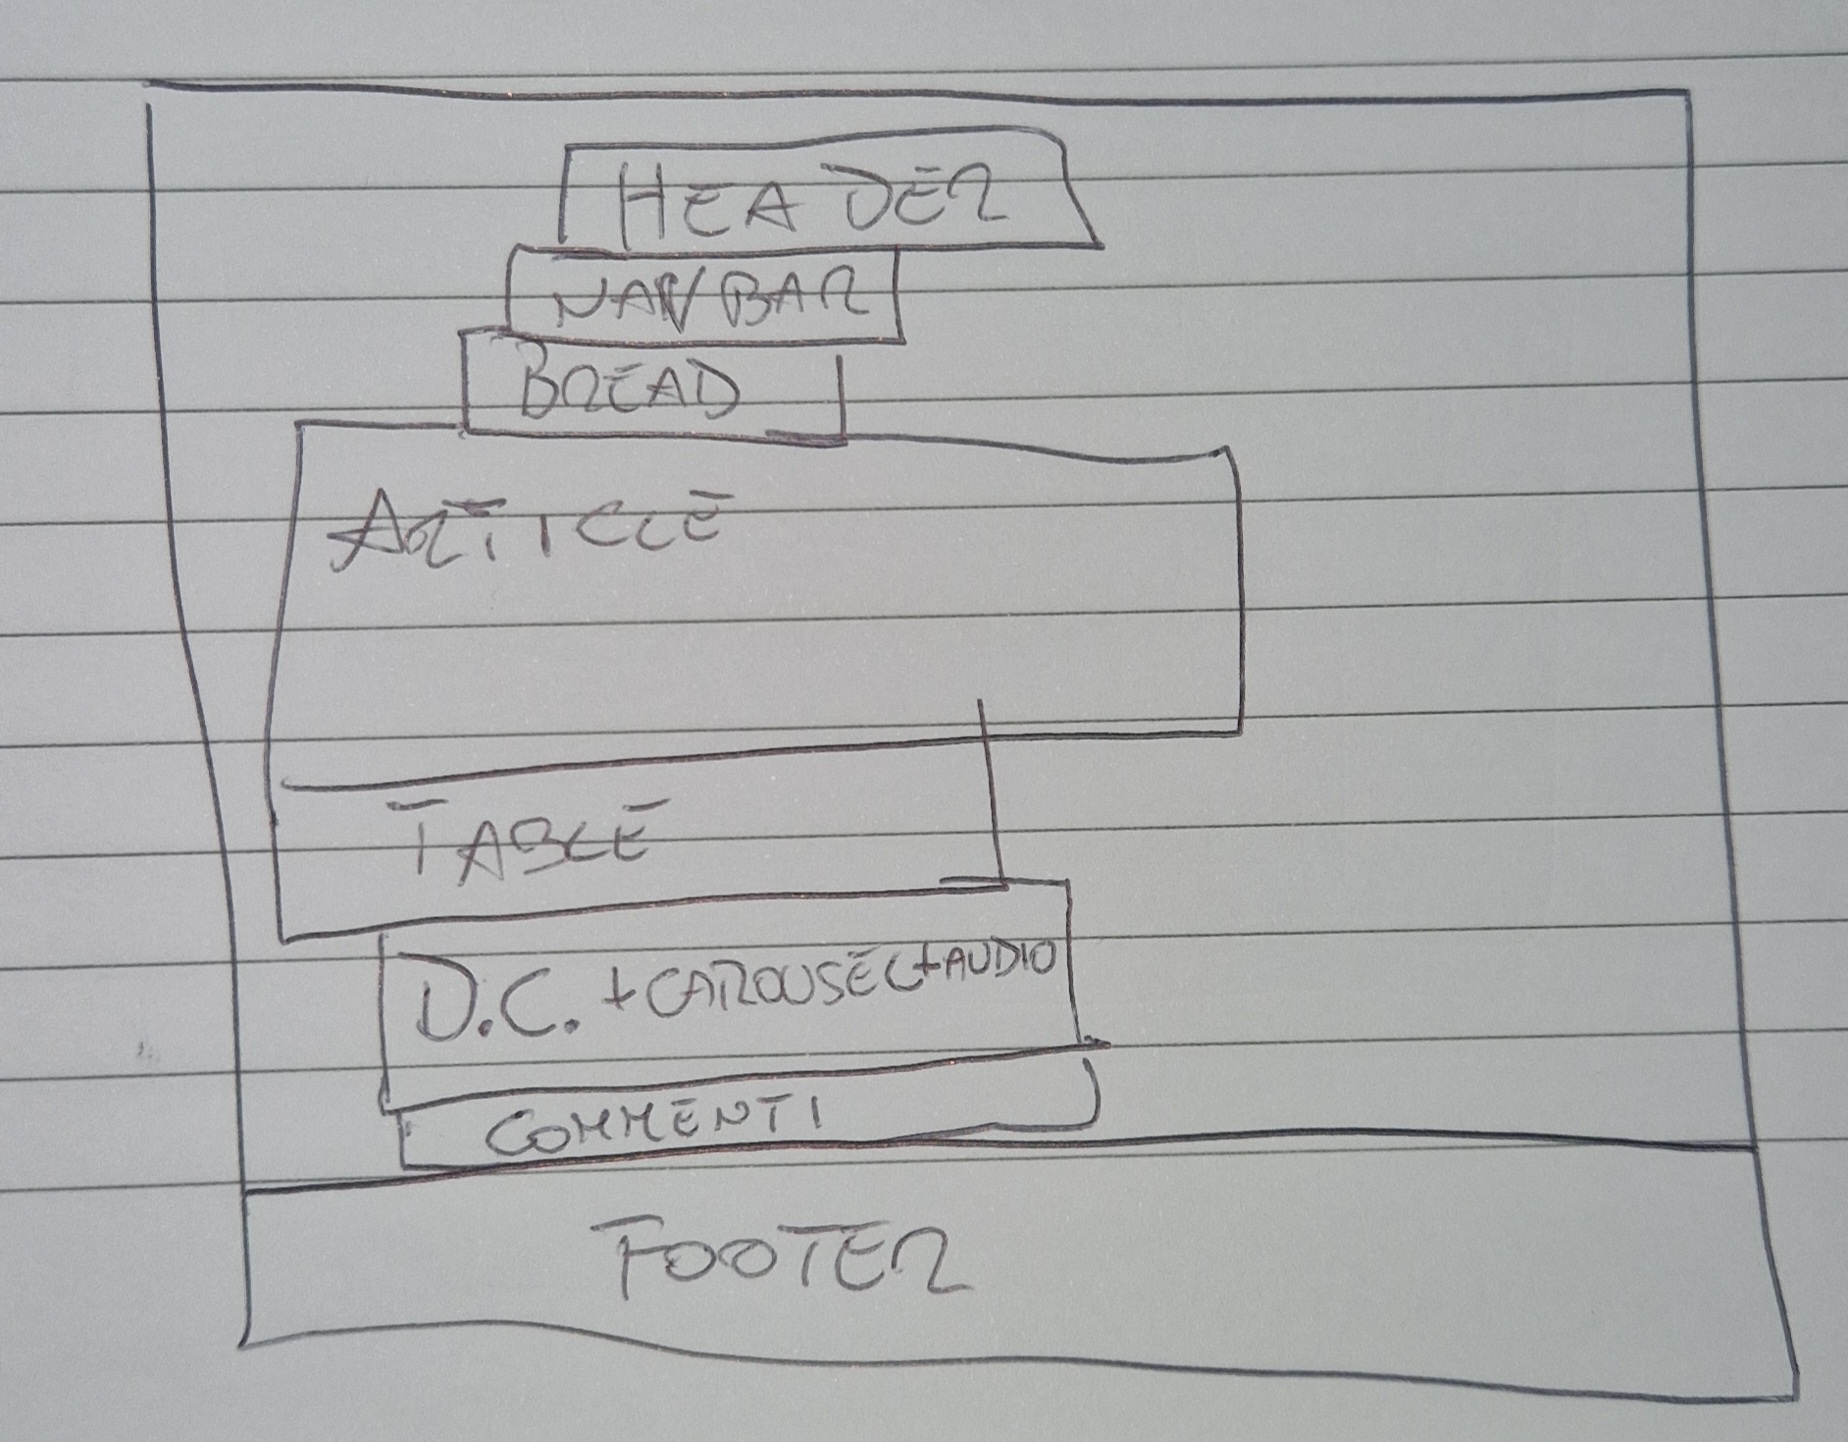 HEADER
NAVBAR
BREAD
ARTICLE
TABLE
D.C. +CAROUSEL+AUDIO
COMMENTI
FOOTER